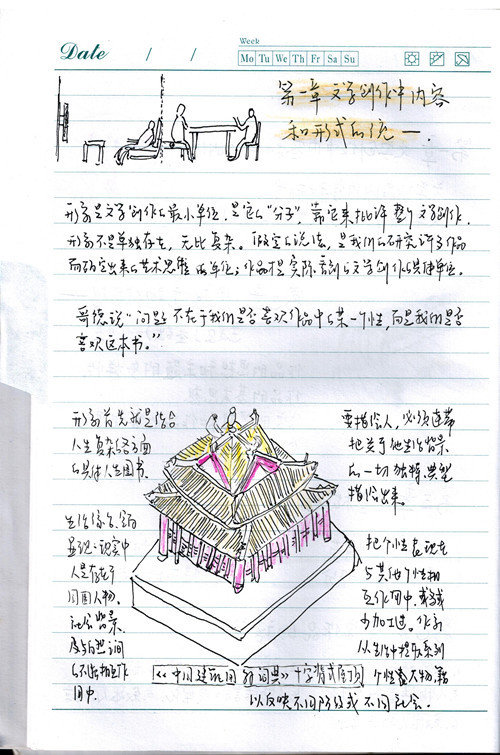 Date / /
Week
Mo Tu We Th Fr Sa Su
第一章 文学创作中内容
和形式的统一.
形象是文学创作的最小单位,是它的“分子”,靠它来批评整个文学创作.
形象不是单独存在,无比复杂。 的说法,是我们研究许多作品
而确定出来的艺术思维的单位;作品是实际 的文学创作的具体单位。
歌德说“问题不在于我们是否喜欢作品中的某一个性,而是我们是否
喜欢这本书。”
形象首先就是结合
人生复杂各方面
的具体人生图书.
生活综合
显现:现实中
人是存在于
周围人物.
社会背景.
及自然间
的不断相互作
用中.
要描绘人,必须连带
把关于他生活背景
的一切独特.典型
描绘出来.
把个性表现在
与其他个性相
互作用中.或减
少加工过.作家
从生活中提取系列
个性表不物
《中国建筑图解词典》十字脊式屋顶
以反映不同阶级或不同社会.